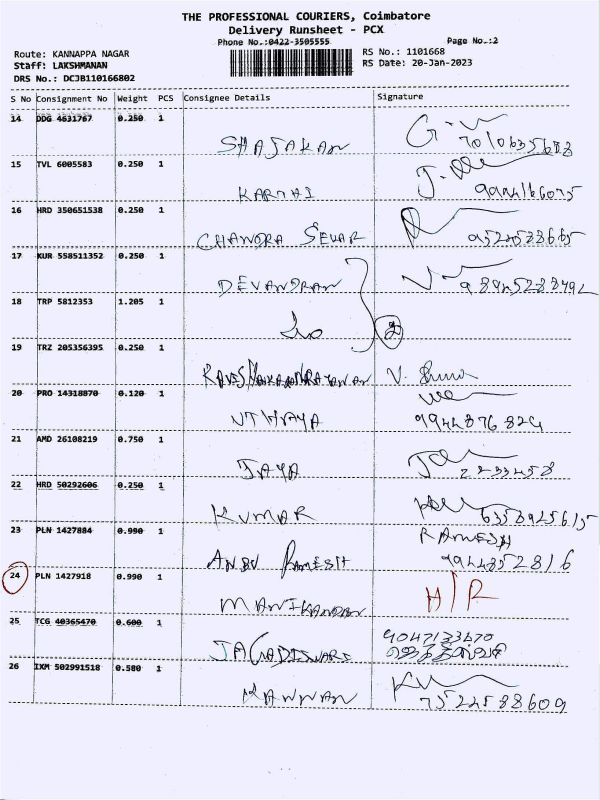 THE PROFESSIONAL COURIERS, Coimbatore
Delivery Runsheet - PCX
Phone No.:0422-3505555
Page No.:2
Route: KANNAPPA NAGAR
RS No.: 1101668
Staff: LAKSHMANAN
RS Date: 20-Jan-2023
DRS No.: DCJB110166802
S No Consignment No Weight PCS Consignee Details Signature
14 DDG 4631767 0.250 1
SHAJAKAN
15 TVL 6005583 0.250 1
KARTHI
16 HRD 350651538 0.250 1
CHANDRA SEKAR
17 KUR 558511352 0.250 1
DEVANDRAN
18 TRP 5812353 1.205 1
2
19 TRZ 205356395 0.250 1
20 PRO 14318870 0.120 1
UTHAYA 9944876824
21 AMD 26108219 0.750 1
JAYA 2233458
22 HRD 50292606 0.250 1
KUMAR
23 PLN 1427884 0.990 1 RAMESH
ANBU RAMESH 9944352816
24 PLN 1427918 0.990 1
MANIKANDAN H/R
25 TCG 40365470 0.600 1
JAGADISWARI
26 IXM 502991518 0.580 1
KANNAN 7522588609